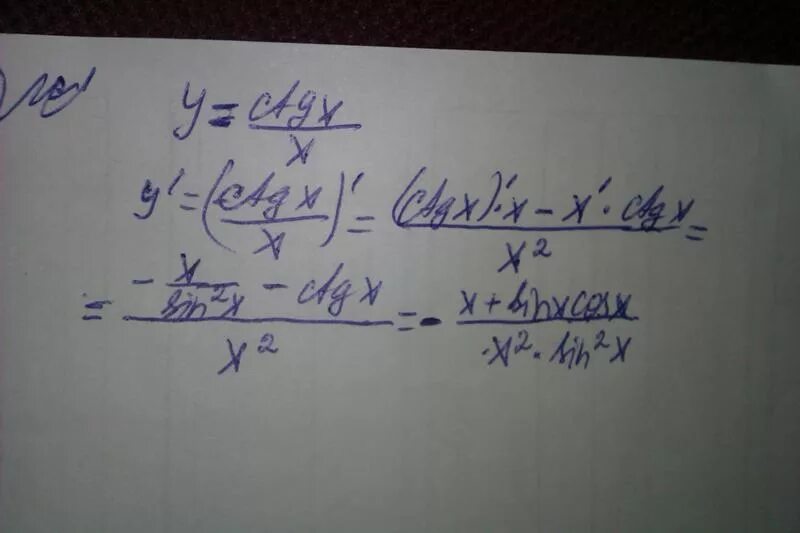 y = ctg x / x
y' = (ctg x / x)' = ((ctg x)'·x - x'·ctg x) / x² =
= (-x / sin²x - ctg x) / x² = - (x + sin x cos x) / (x²·sin²x)